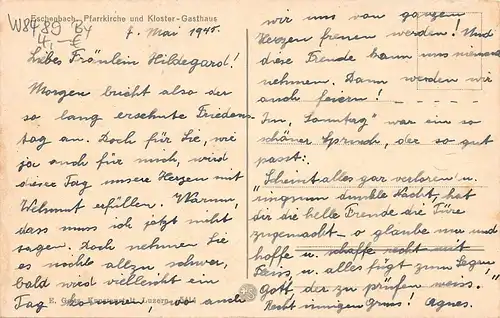 Eschenbach, Pfarrkirche und Kloster-Gasthaus
7. Mai 1945.
Liebes Fräulein Hildegard!
Morgen bricht also der
so lang ersehnte Friedens-
tag an. Doch für Sie, wie
ja auch für mich, wird
dieser Tag unsere Herzen mit
Wehmut erfüllen. Warum,
dass muss ich jetzt nicht
sagen. Doch nehmen Sie
es nicht allzu schwer,
bald wird vielleicht ein
Tag kommen, wo auch
wir uns von ganzem
Herzen freuen werden! Und
diese Freude kann uns niemand
nehmen. Dann werden wir
auch feiern!
Im „Sonntag" war ein so
schöner Spruch, der so gut
passt:
„Scheint alles gar verloren u.
ringsum dunkle Nacht, hat
dir die helle Freude die Türe
zugemacht - o glaube nur und
hoffe u. schaffe recht mit
Fleiss, u. alles fügt zum Segen,
Gott, der zu prüfen weiss."
Recht innigen Gruss! Agnes.
E. Goetz, Luzern.